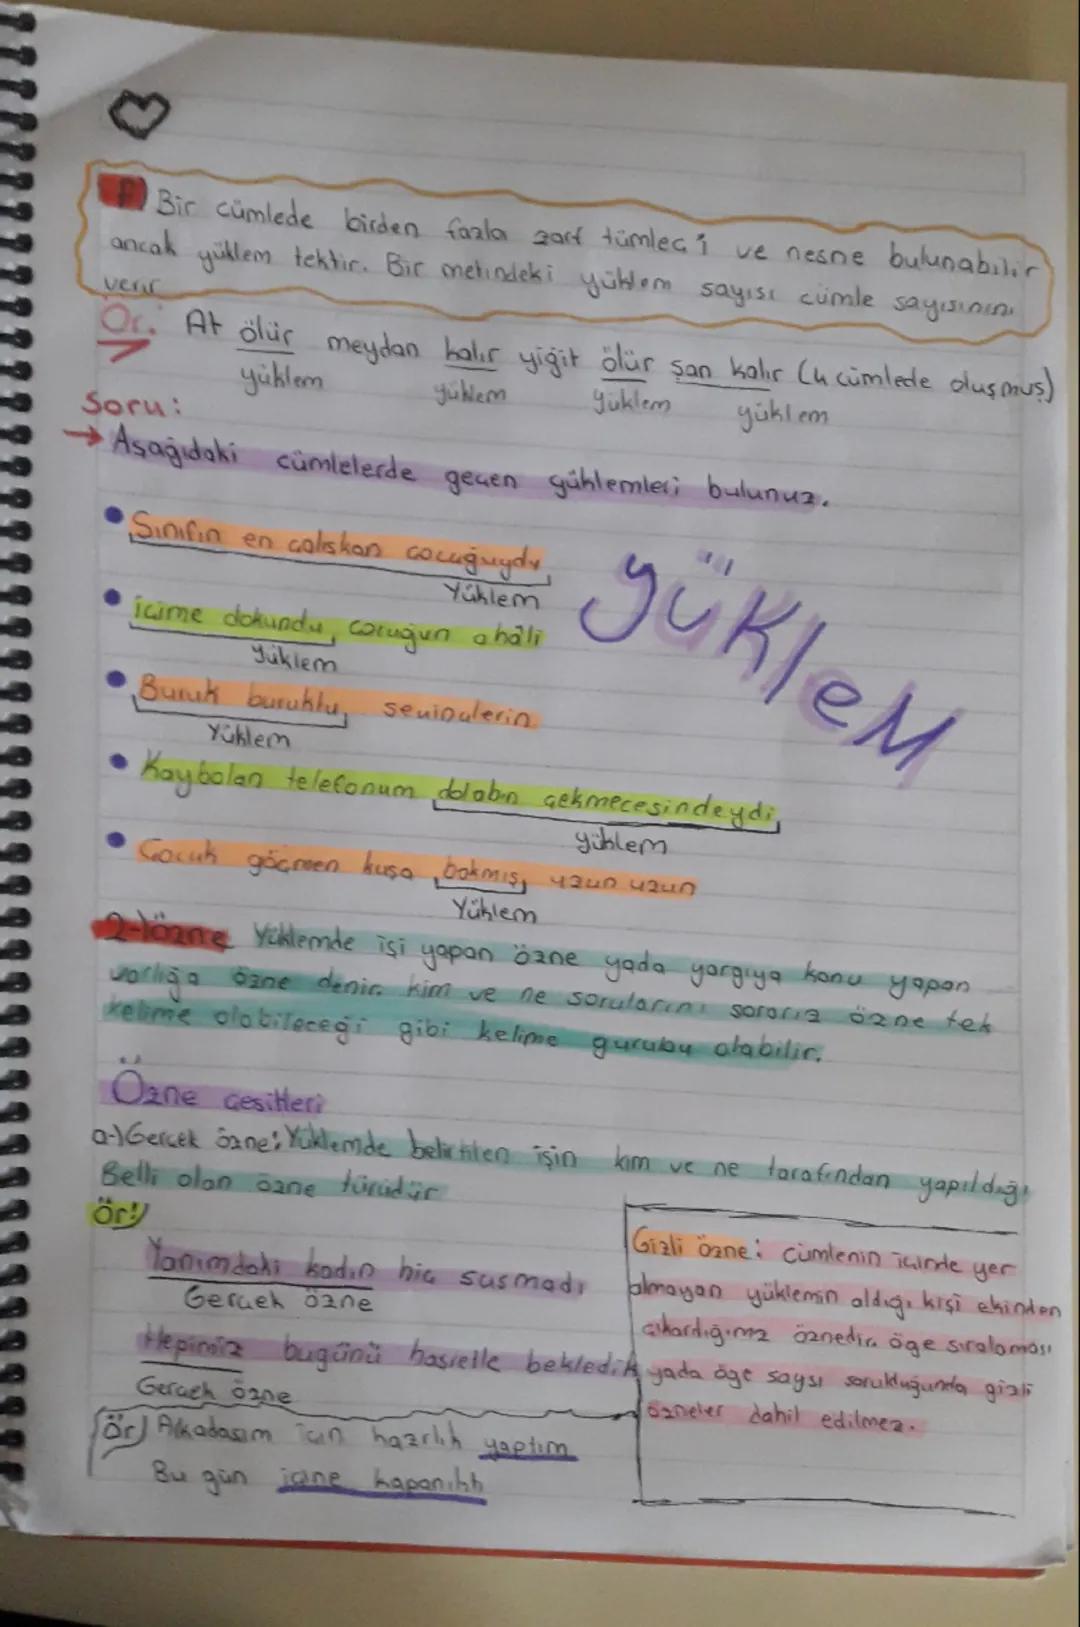 F) Bir cümlede birden fazla zarf tümleci ve nesne bulunabilir
ancak yüklem tektir. Bir metindeki yüklem sayısı cümle sayısının
verir
Ör: At ölür meydan kalır yiğit ölür şan kalır (4 cümlede oluşmuş)
yüklem yüklem yüklem yüklem
Soru:
→ Aşağıdaki cümlelerde geçen yüklemleri bulunuz.
• Sınıfın en çalışkan çocuğuydu
Yüklem
yükleM
• içime dokundu, çocuğun o hâli
Yüklem
• Buruk buruktu, sevinçlerin
Yüklem
• Kaybolan telefonum dolabın çekmecesindeydi
yüklem
• Çocuk göçmen kuşa bakmış, uzun uzun
Yüklem
2-)özne Yüklemde işi yapan özne yada yargıya konu yapan
varlığa özne denir. kim ve ne sorularını sorarız özne tek
kelime olabileceği gibi kelime gurubu olabilir.
Özne çeşitleri
a-)Gerçek özne: Yüklemde belirtilen işin kim ve ne tarafından yapıldığı
Belli olan özne türüdür
Ör:
Yanımdaki kadın hiç susmadı
Gerçek özne
Hepimiz bugünü hasretle bekledik
Gerçek özne
Ör) Arkadaşım için hazırlık yaptım
Bu gün içine kapanıktı
Gizli özne: cümlenin içinde yer
almayan yüklemin aldığı kişi ekinden
çıkardığımız öznedir. öge sıralaması
yada öge saysı sorulduğunda gizli
özneler dahil edilmez.